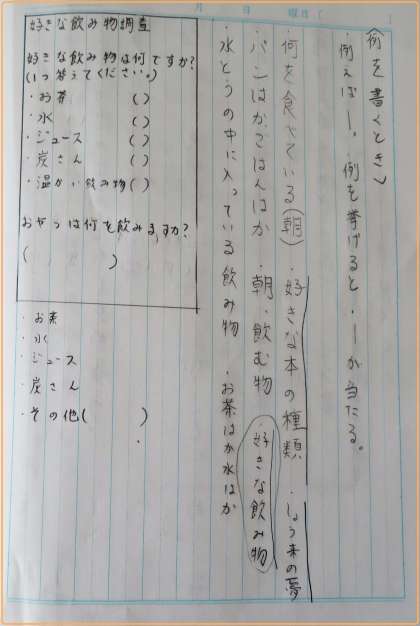 月 日 曜日(
(例を書くとき)
・例えばー。・例を挙げると・ーが当たる。
・何を食べている(朝)・好きな本の種類・しょう来の夢
・パンはかごはんはか・朝、飲む物・好きな飲み物
・水とうの中に入っている飲み物・お茶はか水はか
好きな飲み物調査
好きな飲み物は何ですか?
(1つ答えてください。)
・お茶 ( )
・水 ( )
・ジュース ( )
・炭さん ( )
・温かい飲み物 ( )
おやつは何を飲みますか?
( )
・お茶
・水
・ジュース
・炭さん
・その他( )